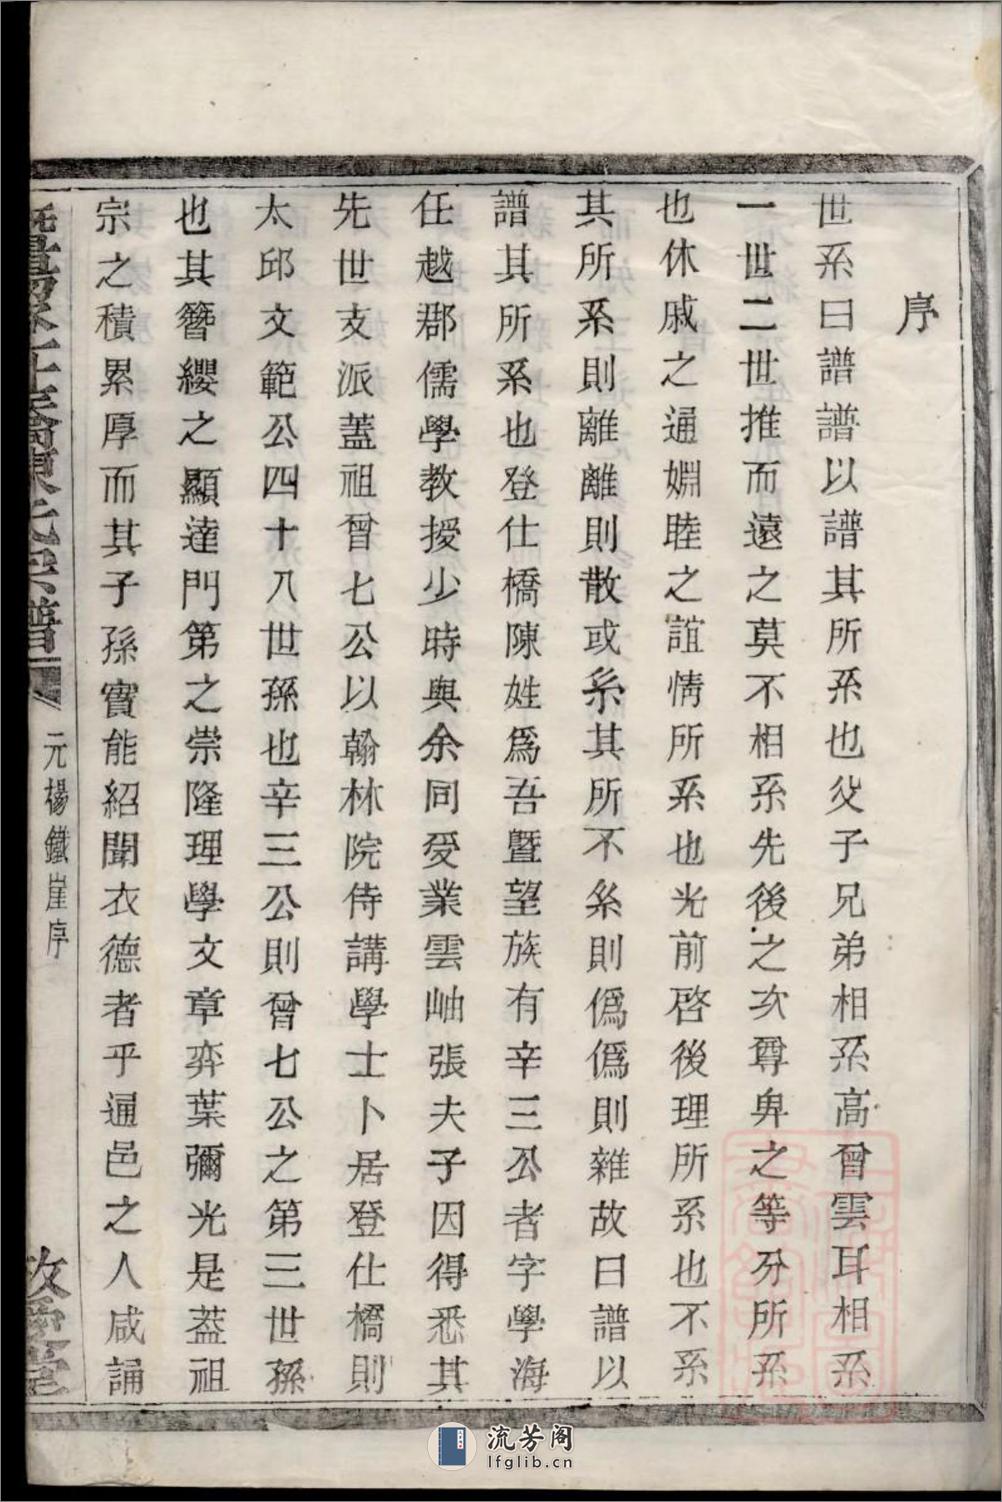 序
世系曰譜譜以譜其所系也父子兄弟相系高曾雲耳相系
一世二世推而遠之莫不相系先後之次尊卑之等分所系
也休戚之通婣睦之誼情所系也光前啓後理所系也不系
其所系則離離則散或系其所不系則僞僞則雜故曰譜以
譜其所系也登仕橋陳姓爲吾暨望族有辛三公者字學海
任越郡儒學教授少時與余同受業雲岫張夫子因得悉其
先世支派蓋祖曾七公以翰林院侍講學士卜居登仕橋則
太邱文範公四十八世孫也辛三公則曾七公之第三世孫
也其簪纓之顯達門第之崇隆理學文章弈葉彌光是葢祖
宗之積累厚而其子孫實能紹聞衣德者乎通邑之人咸誦
元楊鐵崖序
流芳阁
lfglib.cn